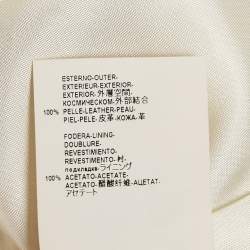 ESTERNO-OUTER-
EXTERIEUR-EXTERIOR-
EXTERIOR-外層空間-
КОСМИЧЕСКОМ-外部結合
100% PELLE-LEATHER-PEAU-
PIEL-PELE-皮革-КОЖА-革
FODERA-LINING-
DOUBLURE-
REVESTIMIENTO-
REVESTIMENTO-衬-
подкладка-ライニング
100% ACETATO-ACETATE-
ACETATO-醋酸纤维-АЦЕТАТ-
アセテート